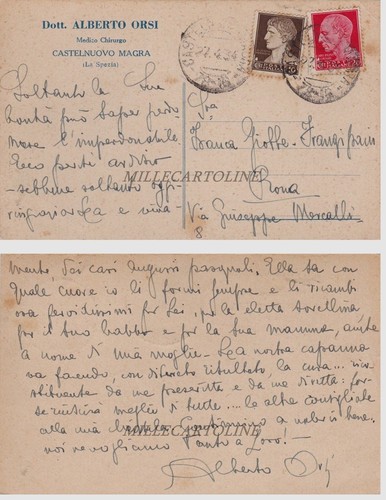 Dott. ALBERTO ORSI
Medico Chirurgo
CASTELNUOVO MAGRA
(La Spezia)
Soltanto la Sua
bontà può saper perdo-
nare l'imperdonabile.
Ecco farti ardito
sebbene soltanto oggi
ringraziarLa e viva
27.4.34
Franca Gioffre-Frangipani
Roma
Via Giuseppe Mercalli
8
MILLECARTOLINE
mente, dei cari auguri pasquali. Ella sa con
quale cuore io li formi sempre e li ricambi
ora fervidissimi per Lei, per la eletta sorellina,
per il Suo babbo e per la Sua mamma, anche
a nome di mia moglie. La nostra
sta facendo, con discreto risultato, la cura... rico-
stituente da me prescritta e da me diretta: for-
se riuscirà meglio di tutte... le altre consigliate
alla mia clientela. Continuino a volerci bene:
noi ne vogliamo tanto a Loro! -
MILLECARTOLINE
Alberto Orsi